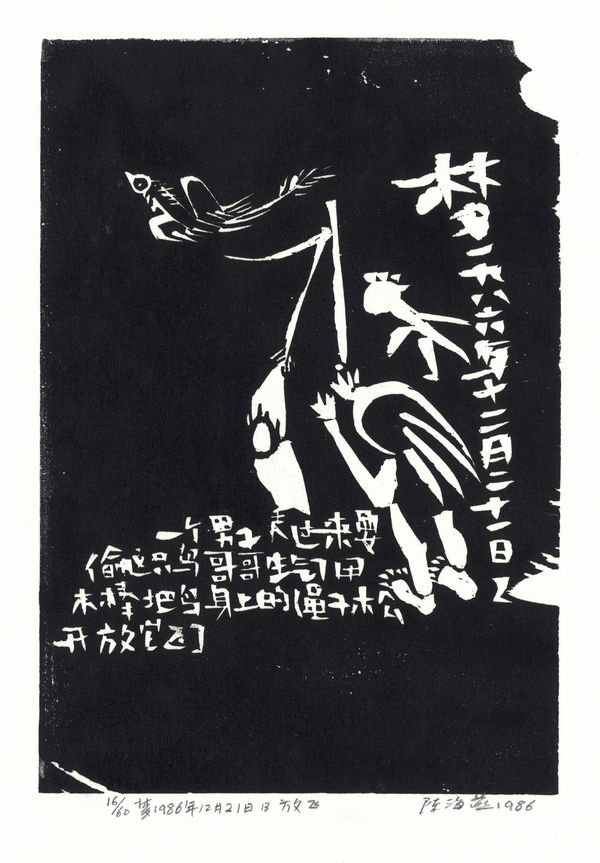 梦一九八六年十二月二十一日
一个男子走过来要
偷这只鸟哥哥生气用
木棒把鸟身上的绳子松
开放它飞了
16/60 梦1986年12月21日 B 放飞 陈海燕1986